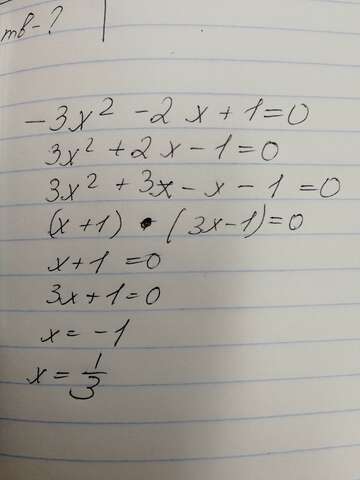 mв-?
-3x² -2x+1=0
3x²+2x-1=0
3x²+3x-x-1=0
(x+1)•(3x-1)=0
x+1=0
3x+1=0
x=-1
x=1/3